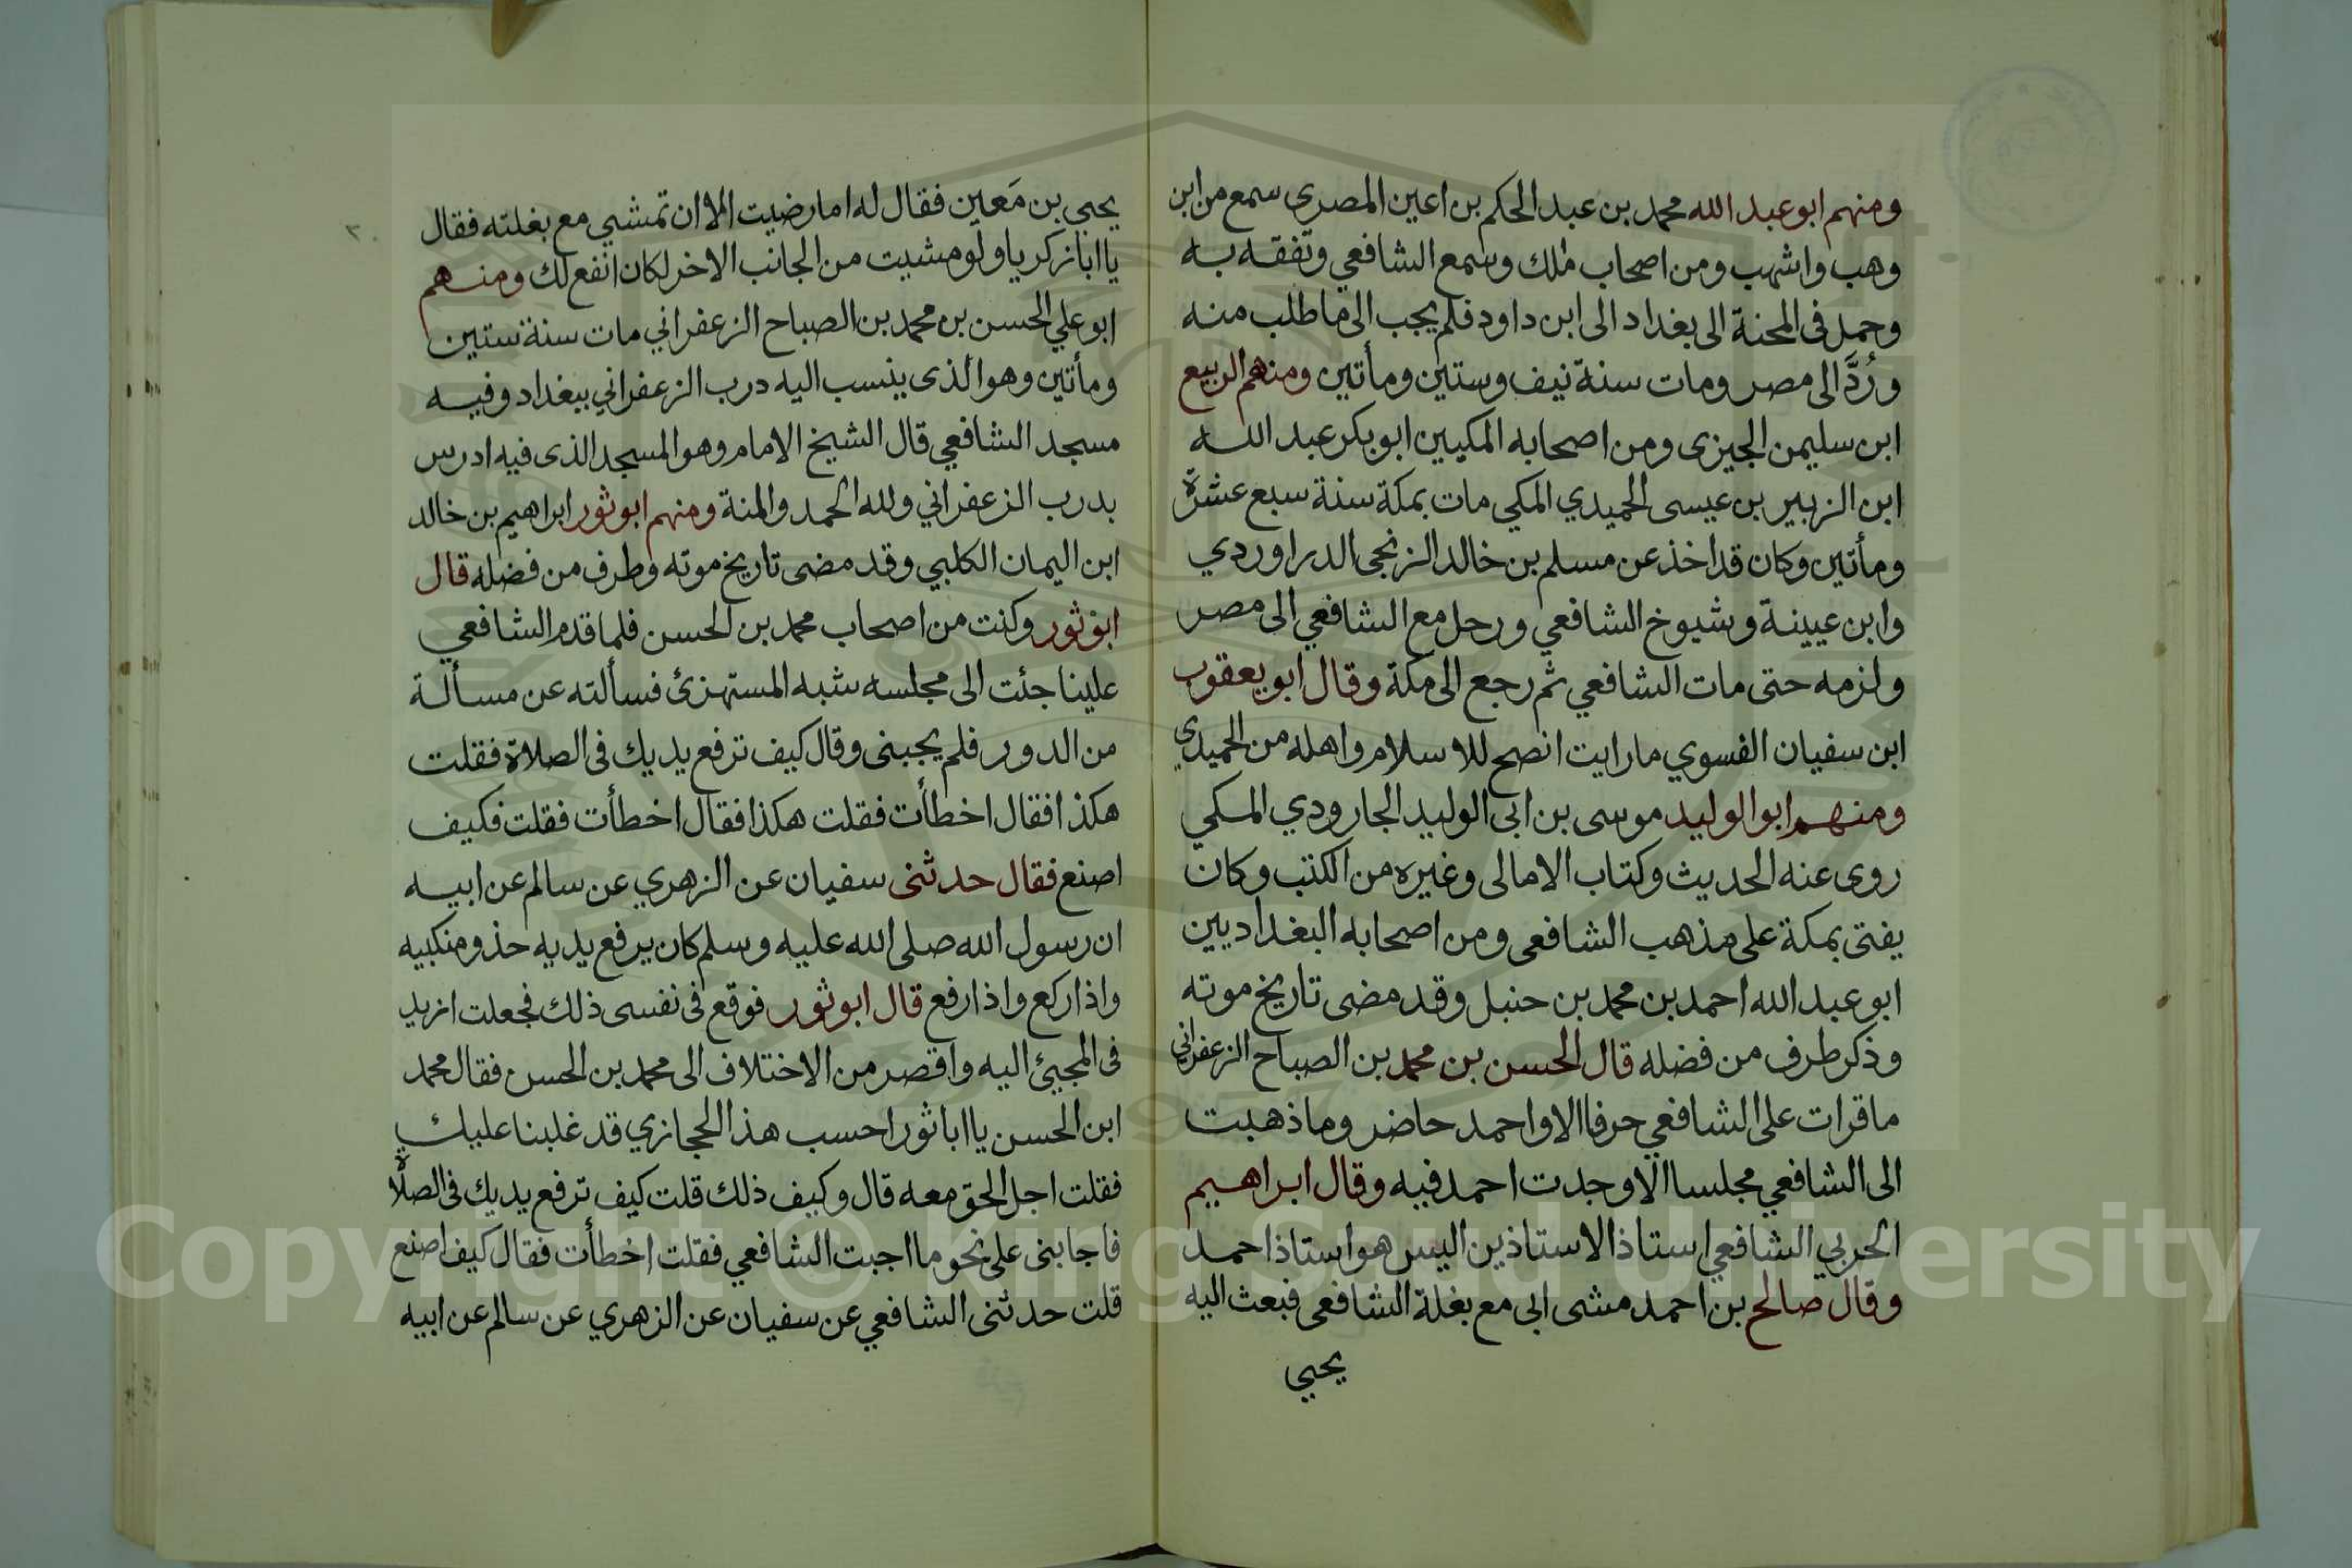 ومنهم ابو عبد الله محمد بن عبد الحكم بن اعين المصري سمع من ابن
وهب واشهب ومن اصحاب ملك وسمع الشافعي وتفقه به
وحمل فى المحنة الى بغداد الى ابن داود فلم يجب الى ما طلب منه
ورُدَّ الى مصر ومات سنة نيف وستين ومأتين ومنهم الربيع
ابن سليمن الجيزى ومن اصحابه المكيين ابو بكر عبد الله
ابن الزبير بن عيسى الحميدي المكي مات بمكة سنة سبع عشرة
ومأتين وكان قد اخذ عن مسلم بن خالد الزنجى الدراوردي
وابن عيينة وشيوخ الشافعي ورحل مع الشافعي الى مصر
ولزمه حتى مات الشافعي ثم رجع الى مكة وقال ابو يعقوب
ابن سفيان الفسوي ما رايت انصح للاسلام واهله من الحميدي
ومنهم ابو الوليد موسى بن ابى الوليد الجارودي المكي
روى عنه الحديث وكتاب الامالى وغيره من الكتب وكان
يفتى بمكة على مذهب الشافعى ومن اصحابه البغداديين
ابو عبد الله احمد بن محمد بن حنبل وقد مضى تاريخ موته
وذكر طرف من فضله قال الحسن بن محمد بن الصباح الزعفرانى
ما قرات على الشافعي حرفا الا واحمد حاضر وما ذهبت
الى الشافعي مجلسا الا وجدت احمد فيه وقال ابراهيم
الحربي الشافعي استاذ الاستاذين اليس هو استاذ احمد
وقال صالح بن احمد مشى ابى مع بغلة الشافعى فبعث اليه
يحيي
يحيي بن مَعين فقال له اما رضيت الا ان تمشي مع بغلته فقال
يا ابا زكريا ولو مشيت من الجانب الاخر لكان انفع لك ومنهم
ابو علي الحسن بن محمد بن الصباح الزعفراني مات سنة ستين
ومأتين وهو الذى ينسب اليه درب الزعفراني ببغداد وفيه
مسجد الشافعي قال الشيخ الامام وهو المسجد الذى فيه ادرس
بدرب الزعفراني ولله الحمد والمنة ومنهم ابو ثور ابراهيم بن خالد
ابن اليمان الكلبي وقد مضى تاريخ موته وطرف من فضله قال
ابو ثور وكنت من اصحاب محمد بن الحسن فلما قدم الشافعي
علينا جئت الى مجلسه شبه المستهزئ فسألته عن مسألة
من الدور فلم يجبنى وقال كيف ترفع يديك فى الصلاة فقلت
هكذا فقال اخطأت فقلت هكذا فقال اخطأت فقلت فكيف
اصنع فقال حدثنى سفيان عن الزهري عن سالم عن ابيه
ان رسول الله صلى الله عليه وسلم كان يرفع يديه حذو منكبيه
واذا ركع واذا رفع قال ابو ثور فوقع فى نفسى ذلك فجعلت ازيد
فى المجيئ اليه واقصر من الاختلاف الى محمد بن الحسن فقال محمد
ابن الحسن يا ابا ثور احسب هذا الحجازي قد غلبنا عليك
فقلت اجل الحق معه قال وكيف ذلك قلت كيف ترفع يديك فى الصلاة
فاجابنى على نحو ما اجبت الشافعي فقلت اخطأت فقال كيف اصنع
قلت حدثنى الشافعي عن سفيان عن الزهري عن سالم عن ابيه
Copyright © King Saud University